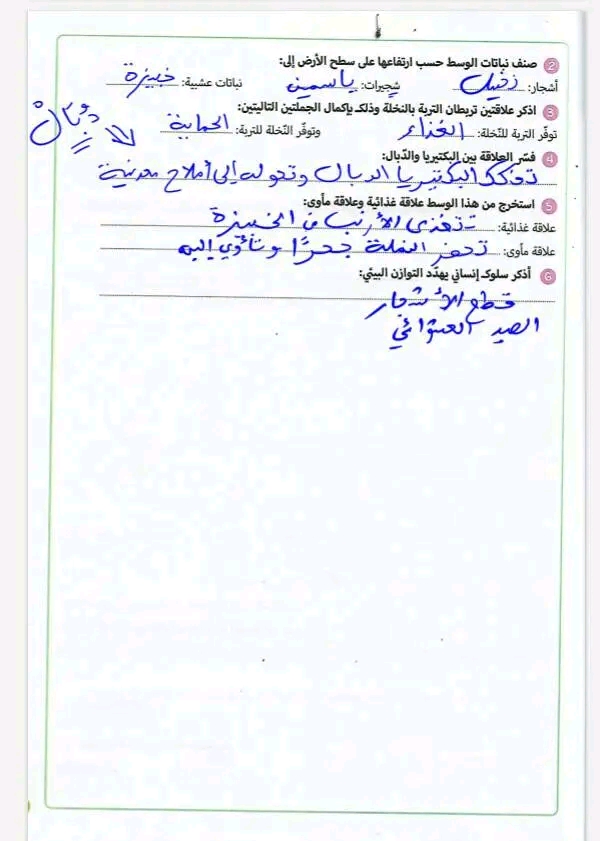 2 صنف نباتات الوسط حسب ارتفاعها على سطح الأرض إلى:
أشجار: نخيل شجيرات: ياسمين نباتات عشبية: خبيزة
3 اذكر علاقتين تربطان التربة بالنخلة وذلك بإكمال الجملتين التاليتين:
توفّر التربة للنّخلة: الغذاء وتوفّر النّخلة للتربة: الحماية
دُبال
4 فسّر العلاقة بين البكتيريا والدّبال:
تفكك البكتيريا الدبال وتحوله إلى أملاح معدنية
5 استخرج من هذا الوسط علاقة غذائية وعلاقة مأوى:
علاقة غذائية: تتغذى الأرنب من الخبيزة
علاقة مأوى: تحفر النملة جحرًا وتأوي إليه
6 أذكر سلوك إنساني يهدّد التوازن البيئي:
قطع الأشجار
الصيد العشوائي